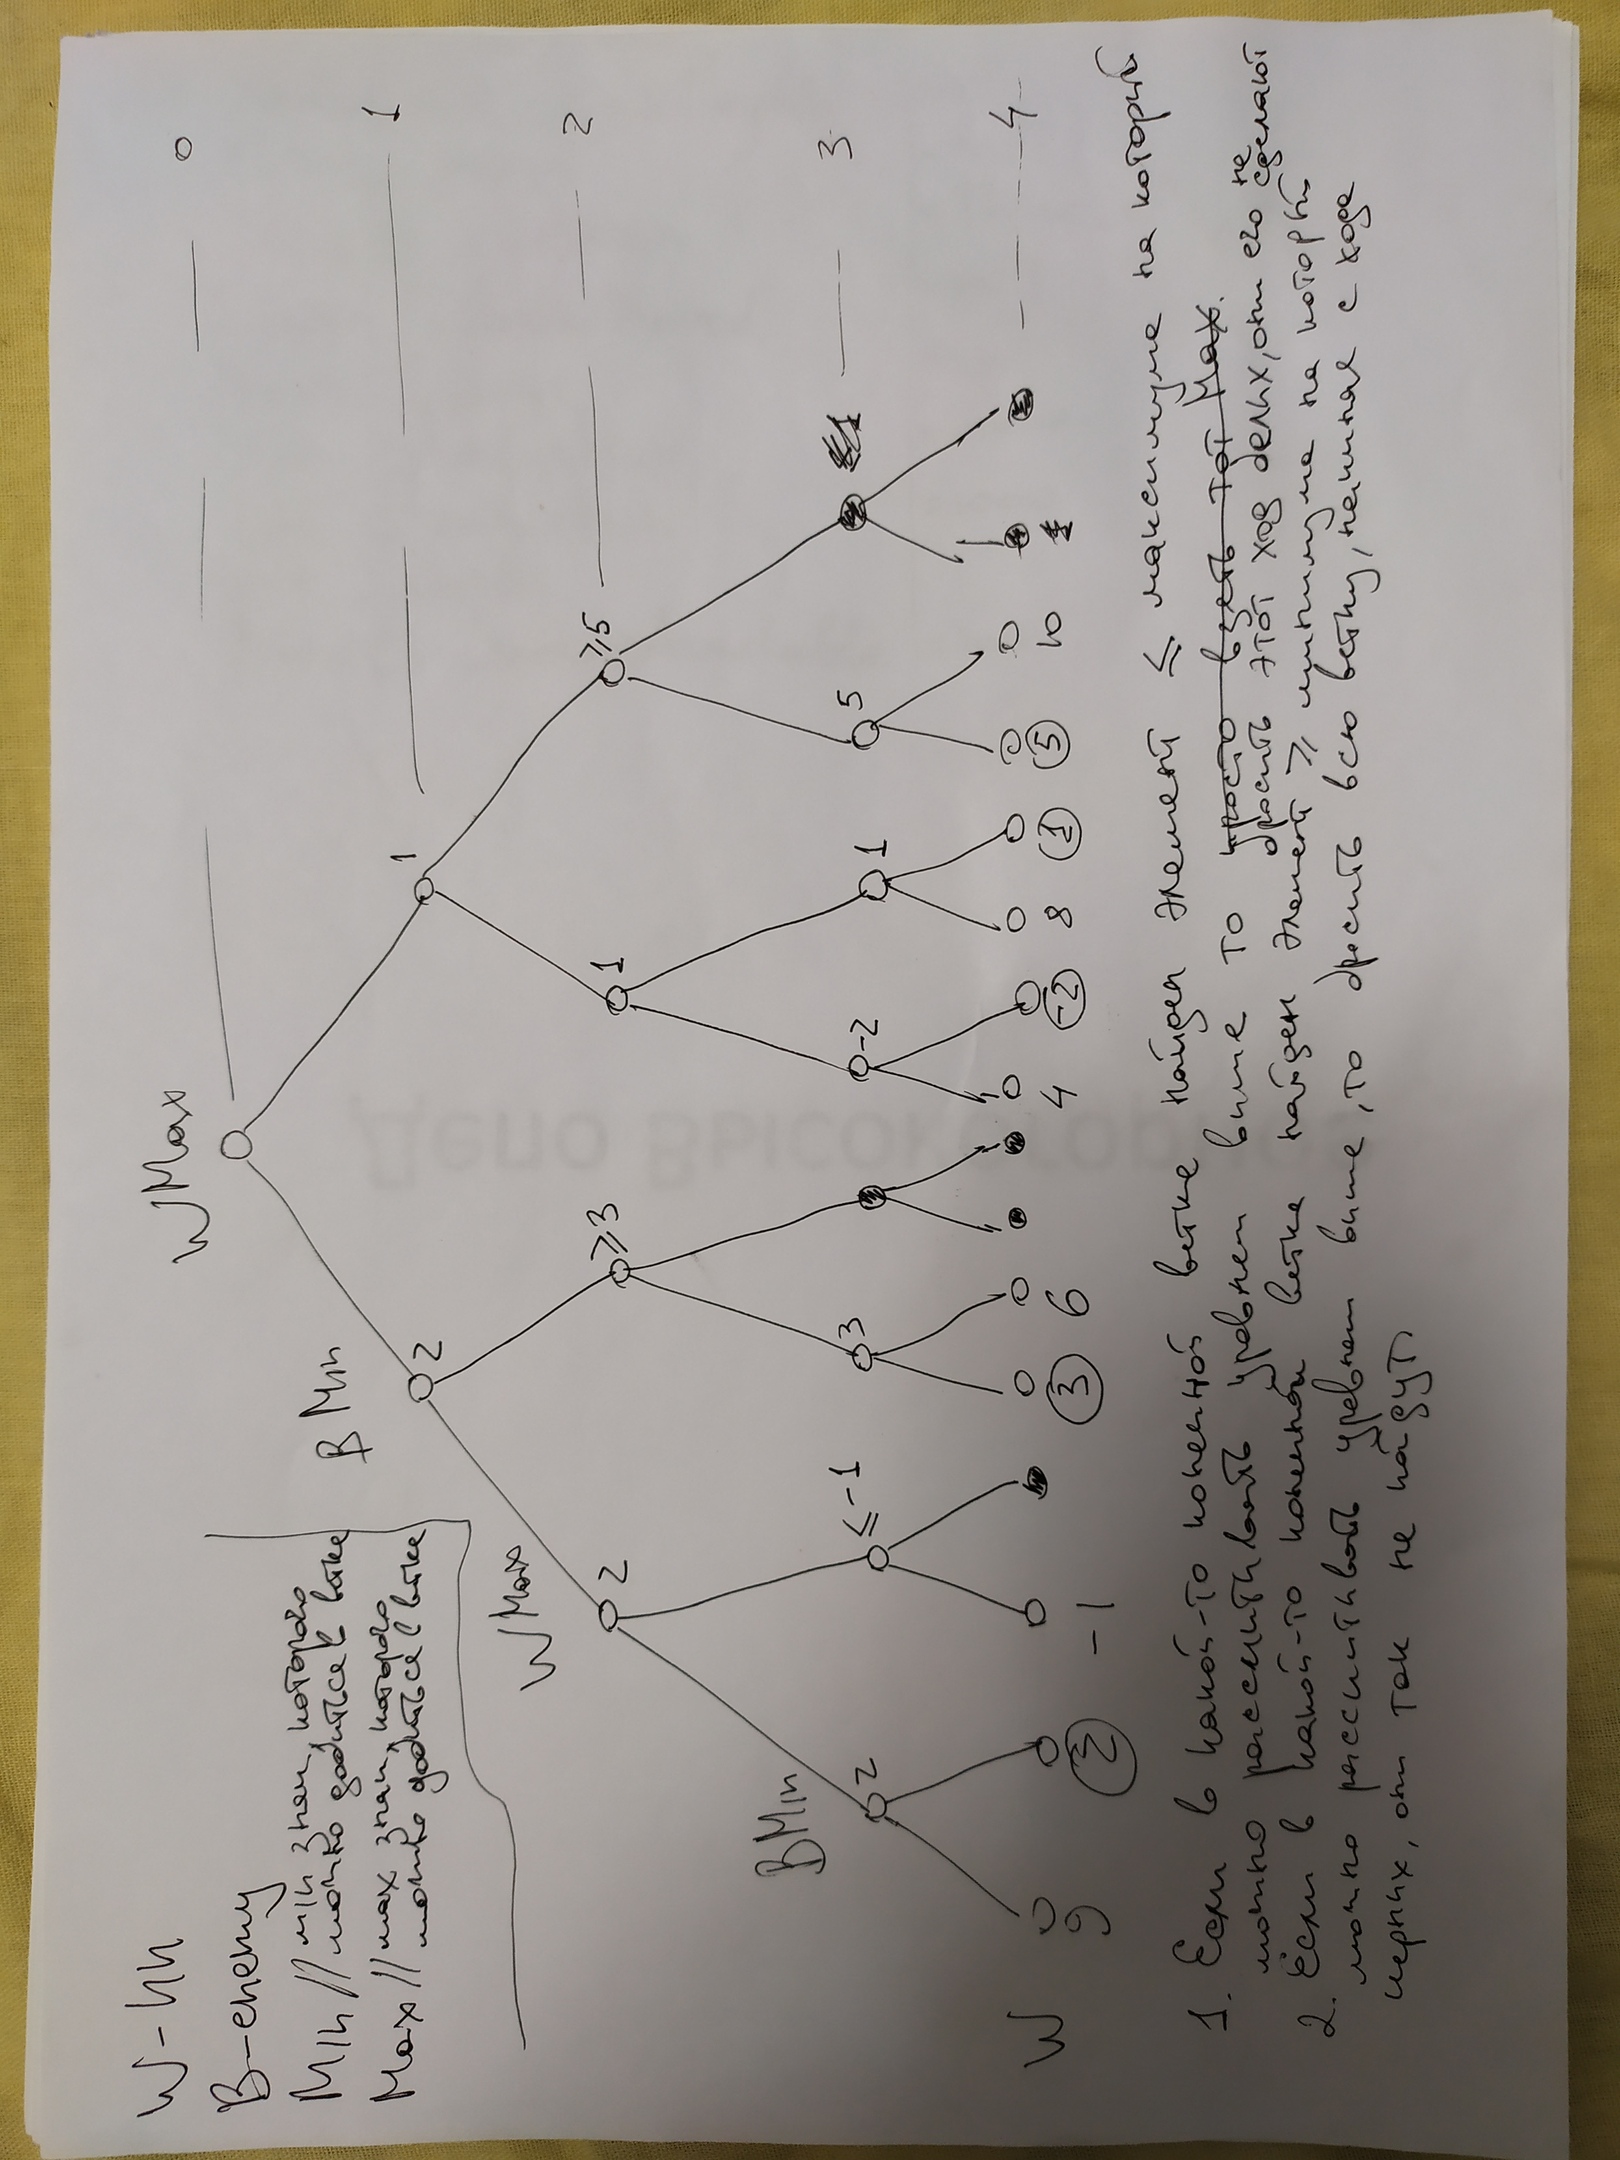 W - нн
B - enemy
Min // min знач, которого
можно добиться в ветке
Max // max знач, которого
можно добиться в ветке
W Max
0
B Min
2
1
1
W Max
2
≥3
1
≥5
2
B Min
2
≤-1
3
-2
1
5
3
W
9
2
-1
3
6
4
-2
8
1
5
10
4
1. Если в какой-то конечной ветке найден элемент ≤ максимума на который
можно рассчитывать уровнем выше то просто взять тот Max.
дропить этот ход белых, они его не сделают
2. Если в какой-то конечной ветке найден элемент ≥ минимума на который
можно рассчитывать уровнем выше, то дропить всю ветку, начиная с хода
черных, они так не пойдут